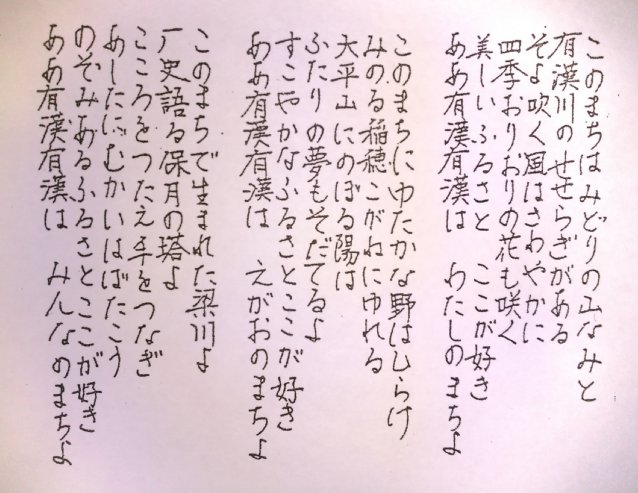 このまちはみどりの山なみと
有漢川のせせらぎがある
そよ吹く風はさわやかに
四季おりおりの花も咲く
美しいふるさと　ここが好き
ああ有漢有漢は　わたしのまちよ
このまちにゆたかな野はひらけ
みのる稲穂こがねにゆれる
大平山にのぼる陽は
ふたりの夢もそだてるよ
すこやかなふるさとここが好き
ああ有漢有漢は　えがおのまちよ
このまちで生まれた梁川よ
厂史語る保月の塔よ
こころをつたえ手をつなぎ
あしたにむかいはばたこう
のぞみあるふるさとここが好き
ああ有漢有漢は　みんなのまちよ